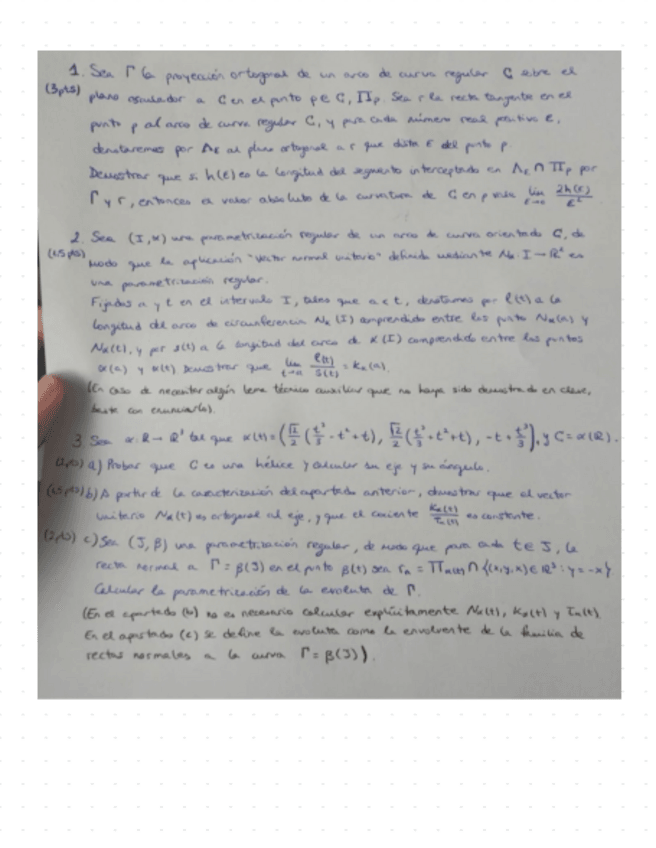 1. Sea Γ la proyección ortogonal de un arco de curva regular C sobre el
(3pts) plano osculador a C en el punto p∈C, Πp. Sea r la recta tangente en el
punto p al arco de curva regular C, y para cada número real positivo ε,
denotaremos por Λε al plano ortogonal a r que dista ε del punto p.
Demostrar que si h(ε) es la longitud del segmento interceptado en Λε ∩ Πp por
Γ y r, entonces el valor absoluto de la curvatura de C en p vale lim ε→0 2h(ε)/ε²
2. Sea (I,α) una parametrización regular de un arco de curva orientado C, de
(1,5 pts) modo que la aplicación "vector normal unitario" definida mediante Nα: I→R² es
una parametrización regular.
Fijados a y t en el intervalo I, tales que a<t, denotamos por l(t) a la
longitud del arco de circunferencia Nα(I) comprendido entre los punto Nα(a) y
Nα(t), y por s(t) a la longitud del arco de α(I) comprendido entre los puntos
α(a) y α(t) Demostrar que lim t→a l(t)/s(t) = kα(a).
(En caso de necesitar algún lema técnico auxiliar que no haya sido demostrado en clase,
baste con enunciarlo).
3 Sea α: R→R³ tal que α(t)=(√2/2(t³/3 - t² + t), √2/2(t³/3 + t² + t), -t + t³/3), y C=α(R).
a) Probar que C es una hélice y calcular su eje y su ángulo.
(1,5 pts) b) A partir de la caracterización del apartado anterior, demostrar que el vector
unitario Nα(t) es ortogonal al eje, y que el cociente kα(t)/τα(t) es constante.
(2pts) c) Sea (J,β) una parametrización regular, de modo que para cada t∈J, la
recta normal a Γ=β(J) en el punto β(t) sea = Πα(t) ∩ {(x,y,z)∈R³: y=-x}
Calcular la parametrización de la evoluta de Γ.
(En el apartado (b) no es necesario calcular explícitamente Nα(t), kα(t) y τα(t)
En el apartado (c) se define la evoluta como la envolvente de la familia de
rectas normales a la curva Γ=β(J)).